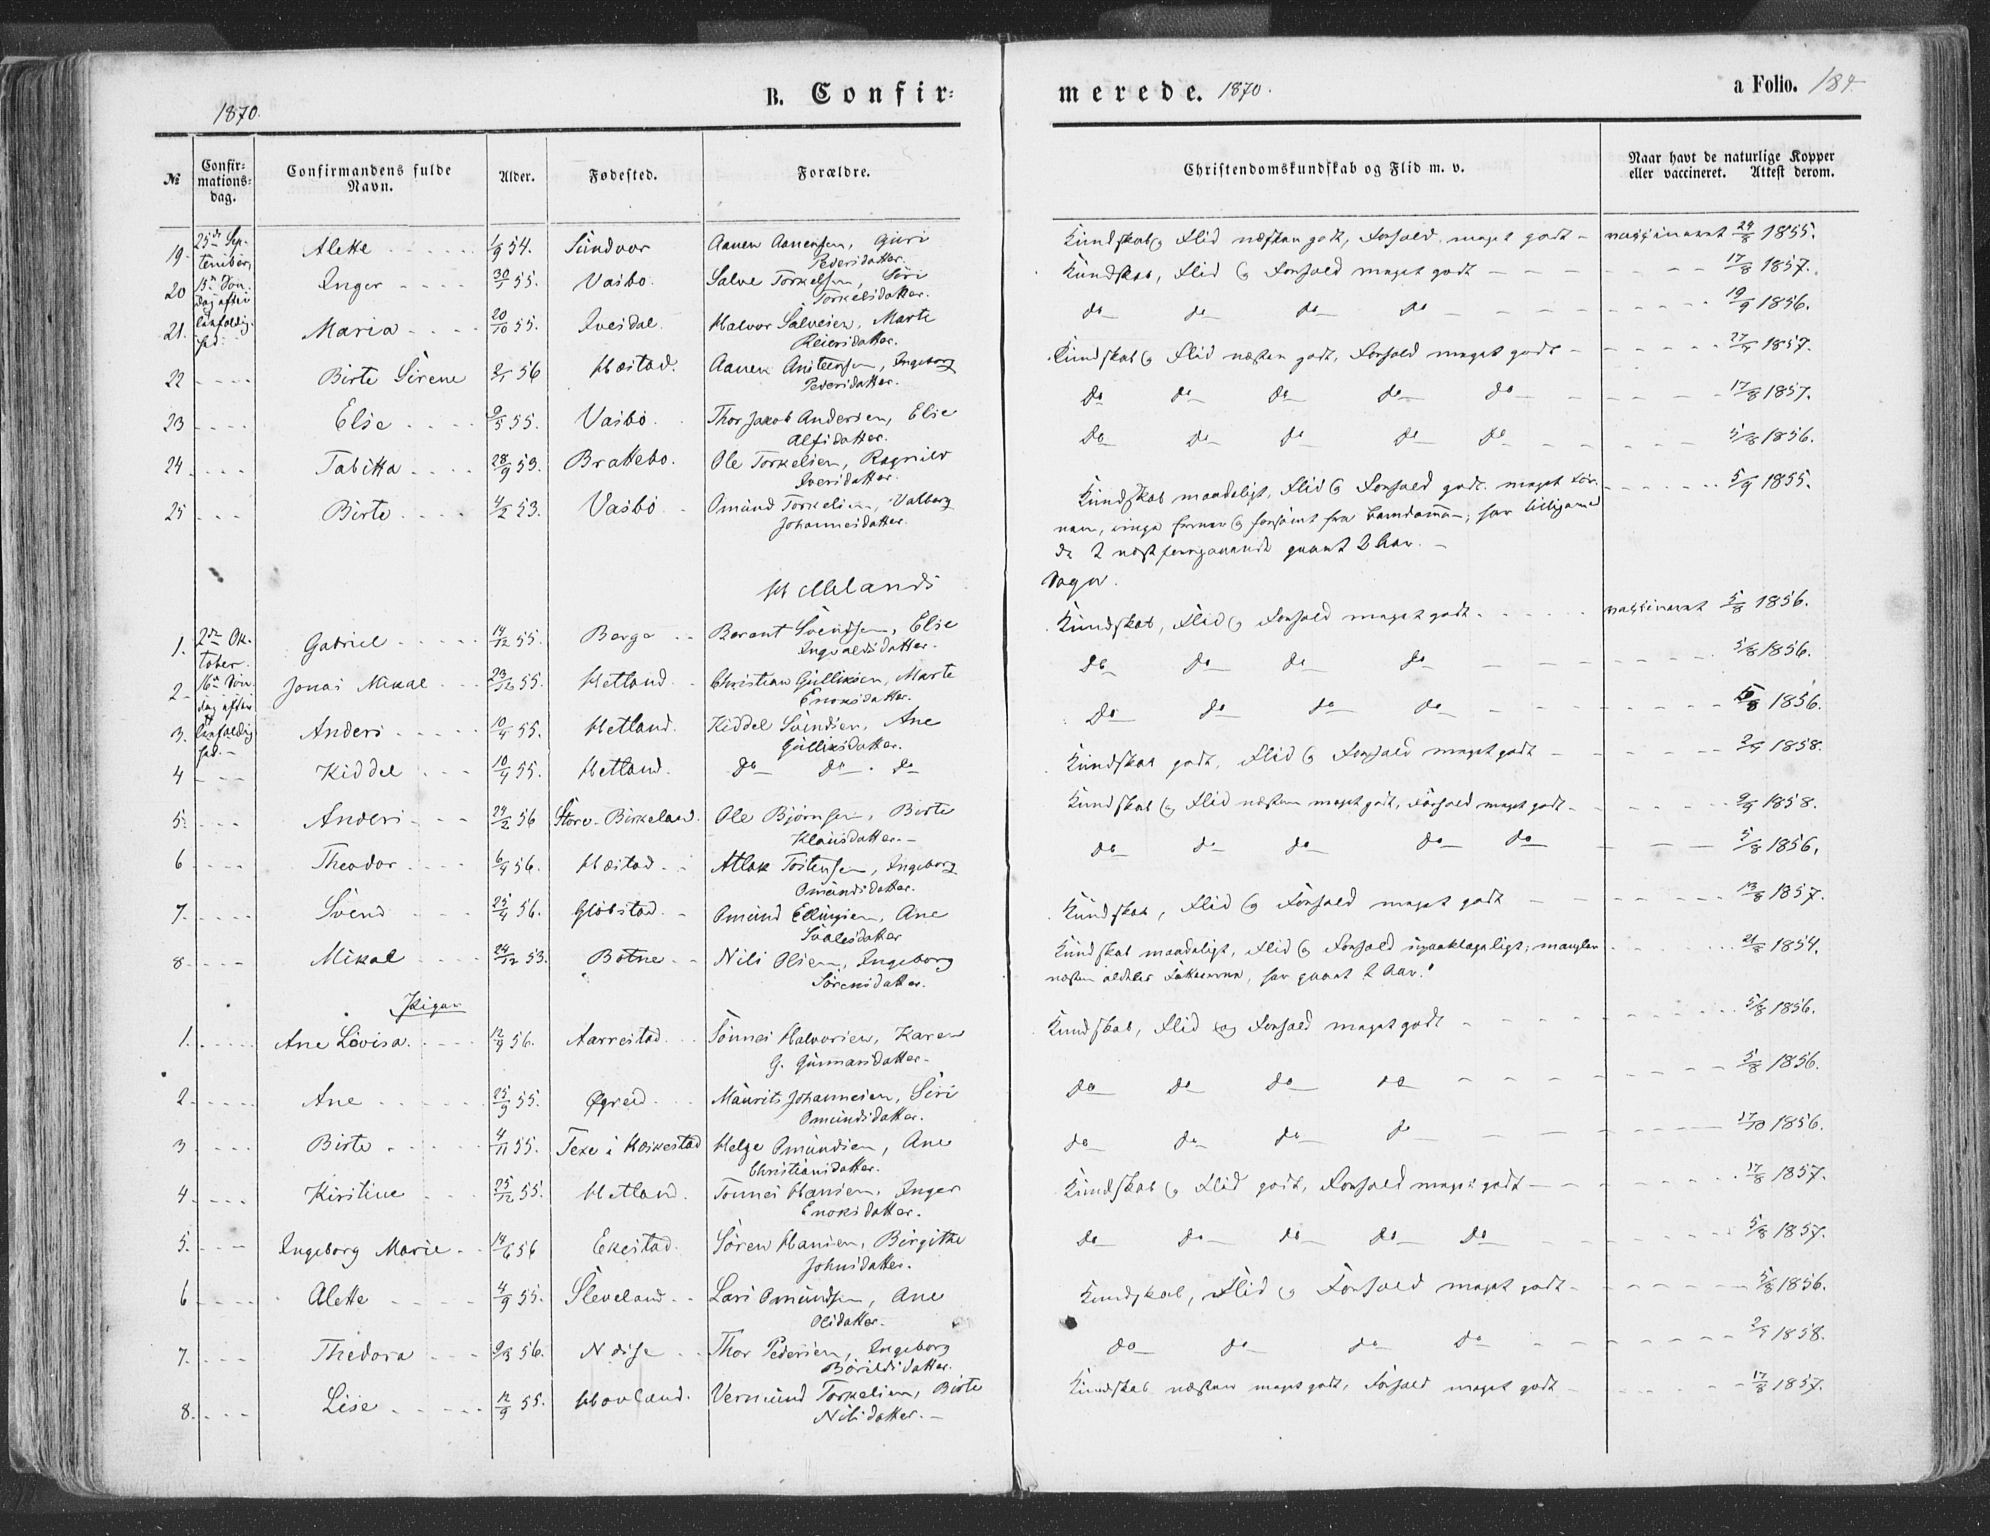 1870.
B. Confir-
merede. 1870.
a Folio. 184.
№
Confir-
mations-
dag.
Confirmandens fulde
Navn.
Alder.
Fødested.
Forældre.
Christendomskundskab og Flid m. v.
Naar havt de naturlige Kopper
eller vaccineret. Attest derom.
19. 25de Sep- Alette 1/9 54. Sundvor Aanen Aanensen, Guri Kundskab og Flid næsten godt, Forhold meget godt vaccineret 29/8 1855.
tember, Pedersdatter.
20 15de Søn- Inger 30/ 55. Vasbø. Salve Torkelsen, Siri Kundskab, Flid og Forhold meget godt 17/8 1857.
dag efter Torkelsdatter.
21. Maria 20/10 55. Ivesdal. Halvor Salvesen, Marte do do do do 19/9 1856.
Reiersdatter.
22 Birte Sirene 2/1 56 Hæstad. Aanen Anstensen, Ingeborg Kundskab og Flid næsten godt, Forhold meget godt 1857.
Pedersdatter.
23 Elsе 9/5 55. Vasbø. Thor Jakob Andersen, Elsе do do do do do 17/8 1857.
Alfsdatter.
24 Tabitta 28/9 53. Brattebo. Ole Torkelsen, Ragnild do do do do do 5/8 1856.
Iversdatter.
25 Birte 4/2 53. Vasbø Omund Torkelsen, Valborg Kundskab maadeligt, Flid og Forhold godt. meget 5/9 1855.
Johannesdatter.
Helleland
1. 2den Ok- Gabriel 14/12 55. Berge Berent Svendsen, Elsе Kundskab, Flid og Forhold meget godt. vaccineret 5/8 1856.
tober. Ingvaldsdatter.
2 16de Søn- Jonas Mikal 23/ 55. Hetland Christian Gulliksen, Marte do do do do 5/8 1856.
dag efter Enoksdatter.
3. Anders 10/4 55. Hetland. Kiddel Svendsen, Ane do do do do /8 1856.
Gulliksdatter.
4 Kiddel 10/4 55. Hetland. do do do Kundskab godt, Flid og Forhold meget godt 1858.
5. Anders 24/2 56 Store-Birkeland. Ole Bjørnsen, Birte Kundskab og Flid næsten meget godt, Forhold meget godt 1858.
Klausdatter.
6 Theodor 6/4 56. Hæstad. Atlak Tostensen, Ingeborg do do do do do 5/8 1856.
Omundsdatter.
7. Svend 25/4 56. Gløbstad. Omund Ellingsen, Ane Kundskab, Flid og Forhold meget godt 13/8 1857.
8 Mikal 24/12 53. Botne Nils Olsen, Ingeborg Kundskab maadeligt, Flid og Forhold upaaklageligt; mangler 21/8 1854.
Sørensdatter.
Piger
1. Ane Lovisa. 12/9 56. Aarrestad. Tønnes Halvorsen, Karen Kundskab, Flid og Forhold meget godt 5/8 1856.
G. Gunnarsdatter.
2 Ane 25/9 55. Øgreid. Maurits Johannesen, Siri do do do do 5/8 1856.
Omundsdatter.
3 Birte 4/11 55. Texe i Heskestad Helge Omundsen, Ane do do do do 17/10 1856.
Christiansdatter.
4 Kirstine 25/12 55. Hetland. Tønnes Hansen, Inger Kundskab og Flid godt, Forhold meget godt 17/8 1857.
Enoksdatter.
5. Ingeborg Marie 14/6 56 Ekestad. Søren Hansen, Birgithe do do do do do 5/8 1857.
Johnsdatter.
6 Alette 4/9 55. Sleveland. Lars Omundsen, Ane Kundskab, Flid og Forhold meget godt 5/8 1856.
Olsdatter.
7. Thedora 9/3 56. Thor Pedersen, Ingeborg do do do do 1858.
8. Lise 12/9 55. Hovland. Vermund Torkelsen, Birte Kundskab næsten meget godt, Forhold meget godt 17/8 1857.
Nilsdatter.